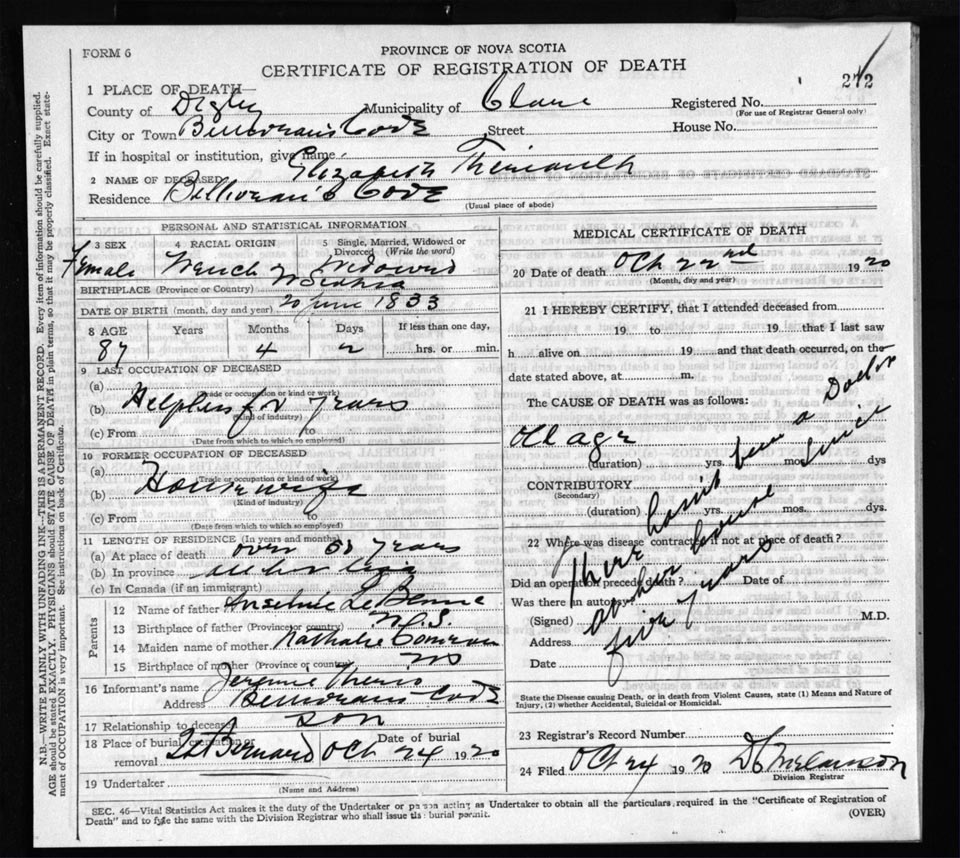 FORM 6
PROVINCE OF NOVA SCOTIA
CERTIFICATE OF REGISTRATION OF DEATH
272
1 PLACE OF DEATH—
County of Digby Municipality of Clare Registered No.
(For use of Registrar General only)
City or Town Cove Street House No.
If in hospital or institution, give name
2 NAME OF DECEASED Elizabeth Theriault
Residence Cove
(Usual place of abode)
PERSONAL AND STATISTICAL INFORMATION
3 SEX 4 RACIAL ORIGIN 5 Single, Married, Widowed or Divorced (Write the word)
Female French Widowed
BIRTHPLACE (Province or Country) N Scotia
DATE OF BIRTH (month, day and year) 20 June 1833
8 AGE Years Months Days If less than one day,
87 4 2 hrs. or min.
9 LAST OCCUPATION OF DECEASED
(a)
(Trade or occupation or kind of work)
(b) Helpless for years
(Kind of industry)
(c) From to
(Date from which to which so employed)
10 FORMER OCCUPATION OF DECEASED
(a)
(Trade or occupation or kind of work)
(b) Housewife
(Kind of industry)
(c) From to
(Date from which to which so employed)
11 LENGTH OF RESIDENCE (In years and months)
(a) At place of death over years
(b) In province all her
(c) In Canada (if an immigrant)
Parents
12 Name of father Le
13 Birthplace of father (Province or country) N.S.
14 Maiden name of mother Nathalie
15 Birthplace of mother (Province or country) NS
16 Informant's name
Address Cove
17 Relationship to deceased son
18 Place of burial, cremation or removal St Bernard Date of burial Oct 24 1920
19 Undertaker
(Name and Address)
MEDICAL CERTIFICATE OF DEATH
20 Date of death Oct 22nd 1920
(Month, day and year)
21 I HEREBY CERTIFY, that I attended deceased from
19 to 19 that I last saw
h alive on 19 and that death occurred, on the
date stated above, at m.
The CAUSE OF DEATH was as follows:
Old age
(duration) yrs. mos. dys
CONTRIBUTORY
(Secondary)
(duration) yrs. mos. dys.
22 Where was disease contracted if not at place of death?
Did an operation precede death? Date of
Was there an autopsy?
(Signed) M.D.
Address
Date
There hasn't been a Doctor
at her house since
five years
State the Disease causing Death, or in death from Violent Causes, state (1) Means and Nature of
Injury, (2) whether Accidental, Suicidal or Homicidal.
23 Registrar's Record Number
24 Filed Oct 24 1920 Melanson
Division Registrar
SEC. 46—Vital Statistics Act makes it the duty of the Undertaker or person acting as Undertaker to obtain all the particulars required in the "Certificate of Registration of
Death" and to file the same with the Division Registrar who shall issue the burial permit.
(OVER)
N.B.—WRITE PLAINLY WITH UNFADING INK—THIS IS A PERMANENT RECORD. Every item of information should be carefully supplied.
AGE should be stated EXACTLY. PHYSICIANS should STATE CAUSE OF DEATH in plain terms, so that it may be properly classified. Exact state-
ment of OCCUPATION is very important. See instructions on back of Certificate.